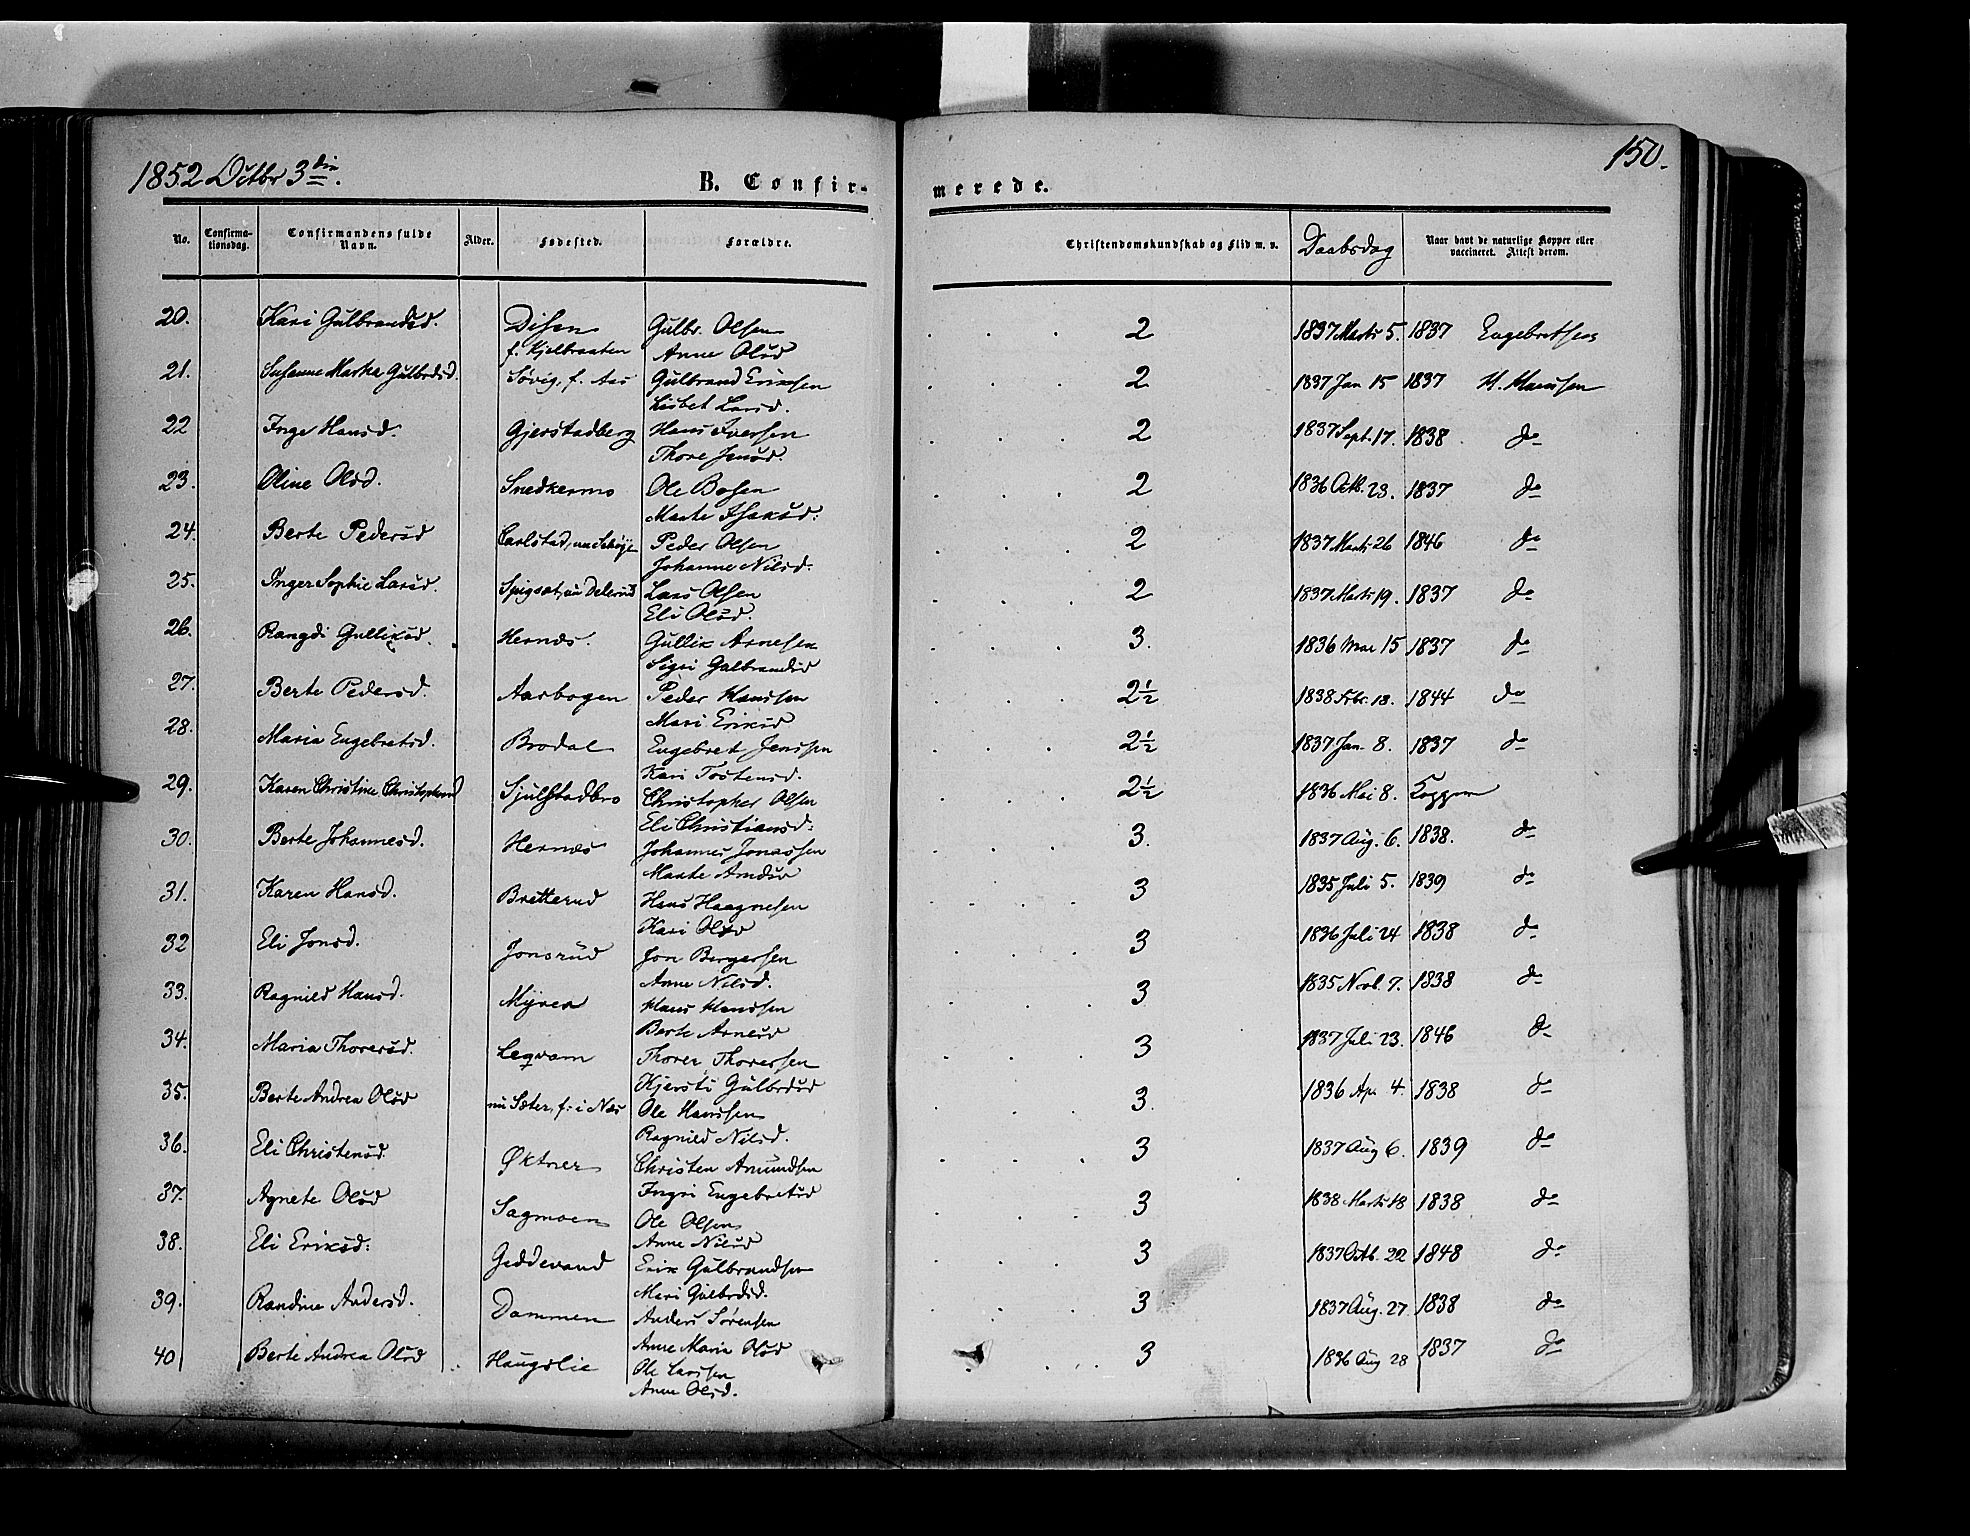 1852 Octbr 3die.
150.
B. Confir- merede.
No. Confirma- tionsdag. Confirmandens fulde Navn. Alder. Fødested. Forældre. Christendomskundskab og Flid m. v. Daabsdag Naar havt de naturlige Kopper eller vaccineret. Attest derom.
20. Kari Gulbrandsd. Disen Gulbr. Olsen 2 1837 Marts 5. 1837 Engebretsen
f. Kjelbraaten Anne Olsd
21. Susanne Marthe Gulbrdsd. Sørig, f. Aas Gulbrand Eriksen 2 1837 Jan 15 1837 H. Hansen
Lisbet Larsd.
22 Inge Hansd. Gjerstadberg Hans Iversen 2 1837 Sept. 17. 1838 do
Thore Jensd.
23. Oline Olsd. Snedkermo Ole Bosen 2 1836 Octb. 23. 1837 do
Marte Isaksd:
24. Berte Pedersd Carlstad, Peder Olsen 2 1837 Marts 26 1846 do
Johanne Nilsd:
25. Inger Sophie Larsd. Lars Olsen 2 1837 Marts 19. 1837 do
Eli Olsd.
26. Rangdi Gulliksd. Hernæs. Gullik Arnesen 3. 1836 Mai 15 1837 do
Sigri Gulbrandsd
27. Berte Pedersd. Aasbogen Peder Hanssen 2½ 1838 Febr. 18. 1844 do
Mari Eriksd
28. Maria Engebretsd. Brodal Engebret Jenssen 2½ 1837 Jan. 8. 1837 do
Kari Tostensd.
29. Karen Christine Christophersd Sjulstadbro Christopher Olsen 2½ 1836 Mai 8. Kopper
Eli Christiansd:
30. Berte Johannesd. Hernæs Johannes Jonassen 3. 1837 Aug. 6. 1838. do
Marte Amdsd
31. Karen Hansd. Bretterud Hans Haagnesen 3 1835 Juli 5. 1839 do
Kari Olsd
32 Eli Jonsd. Jonsrud Jon Bergersen 3 1836 Juli 24 1838 do
Anne Nilsd.
33. Ragnild Hansd. Myren Hans Hanssen 3 1835 Novb. 7. 1838 do
Berte Arnesd
34. Maria Thoresd. Leqvam Thorer Thoresen 3 1837 Juli 23. 1846 do
Kjersti Gulbrdsd
35. Berte Andrea Olsd nu Sæter, f: i Næs Ole Hanssen 3. 1836 Ap. 4. 1838 do
Ragnild Nilsd.
36. Eli Christensd. Øktner Christen Amundsen 3 1837 Aug 6. 1839 do
Ingri Engebretsd
37. Agnete Olsd Sagmoen Ole Olsen 3 1838 Marts 18 1838 do
Anne Nilsd
38. Eli Eriksd: Geddevand Erik Gulbrandsen 3 1837 Octb. 22 1848 do
Mari Gulbrdsd.
39. Randine Andersd. Dammen Anders Sørensen 3 1837 Aug. 27. 1838 do
Anne Maria Olsd
40 Berte Andrea Olsd Haugslie Ole Larssen 3 1836 Aug 28 1837 do
Anne Olsd.